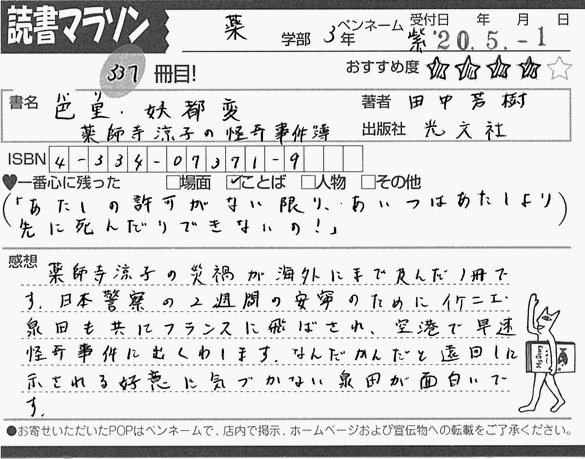 読書マラソン
薬 学部 3年 ペンネーム 紫 受付日 年 月 日
'20.5.-1
337 冊目! おすすめ度 ★★★★☆
書名 巴里・妖都変 著者 田中芳樹
薬師寺涼子の怪奇事件簿 出版社 光文社
ISBN 4-334-07371-9
♥一番心に残った □場面 ☑ことば □人物 □その他
(「あたしの許可がない限り、あいつはあたしより
先に死んだりできないの!」)
感想 薬師寺涼子の災禍が海外にまで及んだ1冊で
す。日本警察の2週間の安寧のためにイケニエ
泉田も共にフランスに飛ばされ、空港で早速
怪奇事件に出くわします。なんだかんだと遠回しに
示される好意に気づかない泉田が面白いで
す。
●お寄せいただいたPOPはペンネームで、店内で掲示、ホームページおよび宣伝物への転載をご了承ください。